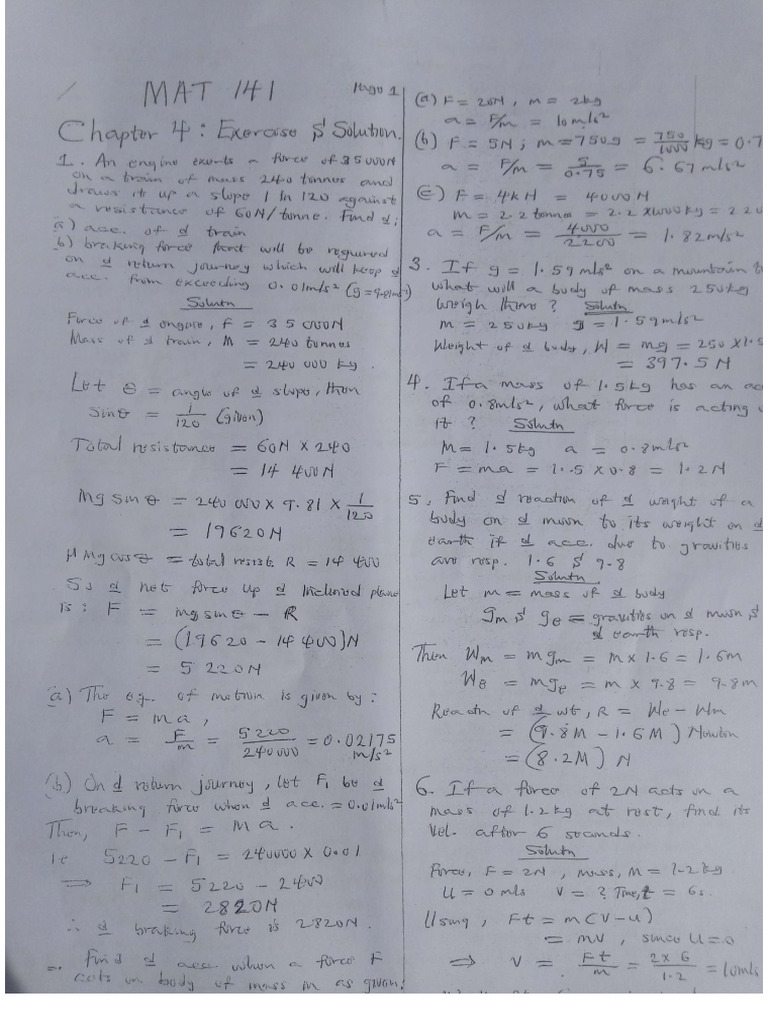 MAT 141
Page 1
Chapter 4: Exercise & Solution.
1. An engine exerts a force of 35000N
on a train of mass 240 tonnes and
draws it up a slope 1 in 120 against
a resistance of 60N/tonne. Find d;
a) acc. of d train
b) braking force that will be required
on d return journey which will keep d
acc. from exceeding 0.01m/s² (g=9.81m/s²)
Solutn
Force of d engine, F = 35000N
Mass of d train, M = 240 tonnes
= 240 000 kg.
Let θ = angle of d slope, then
Sinθ = 1/120 (given)
Total resistance = 60N × 240
= 14 400N
Mg sin θ = 240 000 × 9.81 × 1/120
= 19620N
μ Mg cos θ = total resist. R = 14 400
So d net force up d inclined plane
is: F = mg sin θ - R
= (19620 - 14 400)N
= 5 220N
(a) The eq. of motion is given by:
F = ma,
a = F/m = 5220/240000 = 0.02175 m/s²
(b) On d return journey, let F₁ be d
breaking force when d acc. = 0.01m/s²
Then, F - F₁ = Ma.
i.e 5220 - F₁ = 240000 × 0.01
⇒ F₁ = 5220 - 2400
= 2820N
∴ d braking force is 2820N.
Find d acc when a force F
acts on body of mass m as given:
(a) F = 20N, m = 2kg
a = F/m = 10m/s²
(b) F = 5N; m = 750g = 750/1000 kg = 0.7
a = F/m = 5/0.75 = 6.67m/s²
(c) F = 4kN = 4000N
m = 2.2 tonnes = 2.2 × 1000kg = 220
a = F/m = 4000/2200 = 1.82m/s²
3. If g = 1.59m/s² on a mountain
what will a body of mass 250kg
weigh there? Solutn
m = 250kg g = 1.59m/s²
Weight of d body, W = mg = 250 × 1.5
= 397.5N
4. If a mass of 1.5kg has an ac
of 0.8m/s², what force is acting
it? Solutn
M = 1.5kg a = 0.8m/s²
F = ma = 1.5 × 0.8 = 1.2N
5. Find d reaction of d weight of a
body on d moon to its weight on d
earth if d acc. due to gravities
are resp. 1.6 & 9.8
Solutn
Let m = mass of d body
gm & ge = gravities on d moon &
d earth resp.
Then Wm = mgm = m × 1.6 = 1.6m
We = mge = m × 9.8 = 9.8m
Reactn of d wt, R = We - Wm
= (9.8M - 1.6M) Newton
= (8.2M) N
6. If a force of 2N acts on a
mass of 1.2kg at rest, find its
Vel. after 6 seconds.
Solutn
Force, F = 2N, mass, M = 1.2kg
U = 0m/s V = ? Time, t = 6s.
Using, Ft = m(V-u)
= mv, since U = 0
⇒ V = Ft/m = 2×6/1.2 = 10m/s